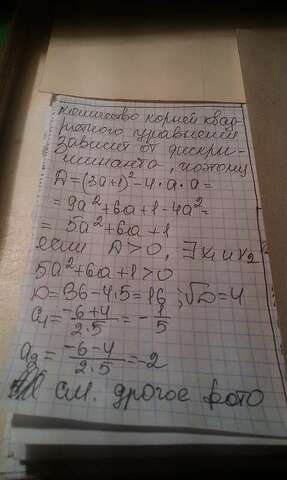 количество корней квад-
ратного уравнения
зависит от дискри-
минанта, поэтому
D=(3a+1)²-4·a·a=
=9a²+6a+1-4a²=
=5a²+6a+1
если D>0, ∃ x₁ и x₂
5a²+6a+1>0
D=36-4·5=16; √D=4
a₁=(-6+4)/(2·5)=-1/5
a₂=(-6-4)/(2·5)=-2
см. другое фото